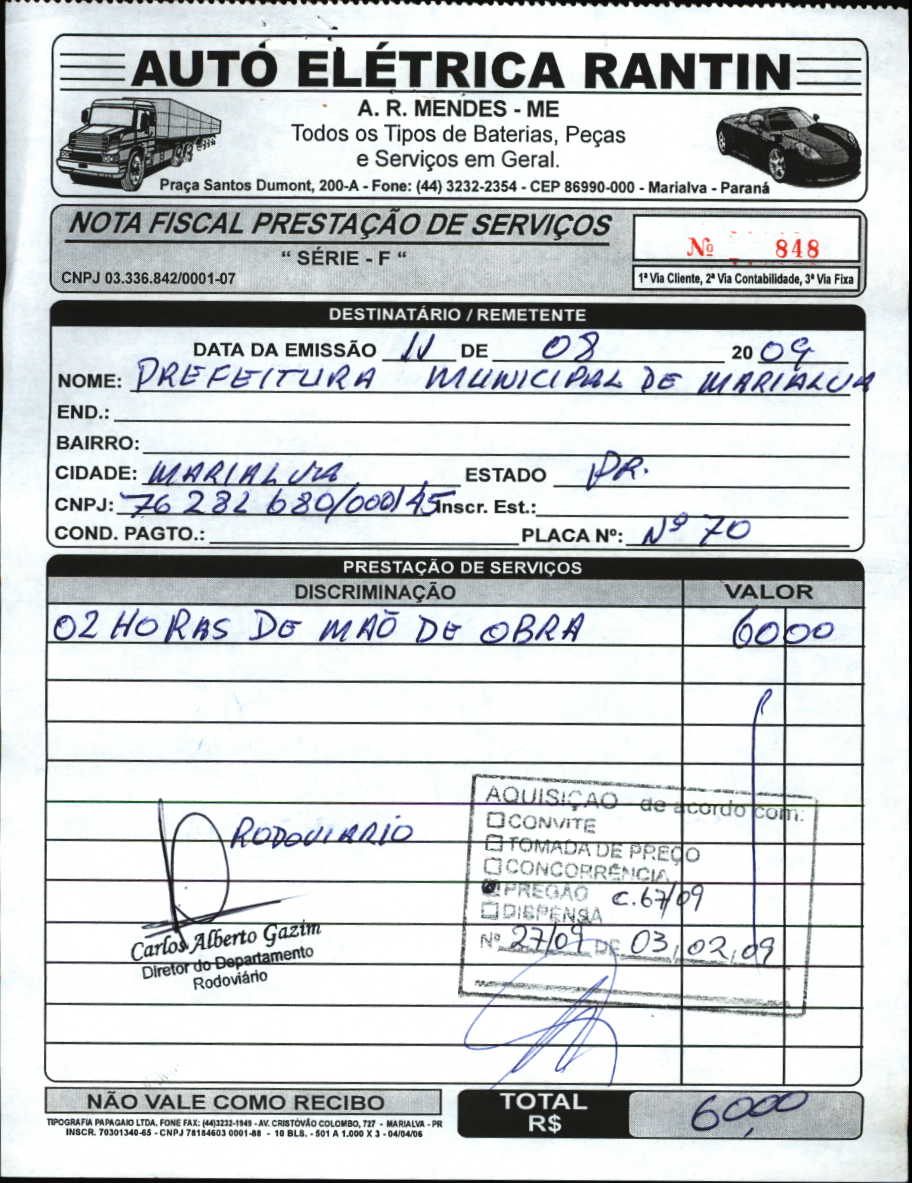 AUTO ELÉTRICA RANTIN
A. R. MENDES - ME
Todos os Tipos de Baterias, Peças
e Serviços em Geral.
Praça Santos Dumont, 200-A - Fone: (44) 3232-2354 - CEP 86990-000 - Marialva - Paraná
NOTA FISCAL PRESTAÇÃO DE SERVIÇOS
“ SÉRIE - F “
CNPJ 03.336.842/0001-07
Nº 848
1ª Via Cliente, 2ª Via Contabilidade, 3ª Via Fixa
DESTINATÁRIO / REMETENTE
DATA DA EMISSÃO 11 DE 08 20 09
NOME: PREFEITURA MUNICIPAL DE MARIALVA
END.:
BAIRRO:
CIDADE: MARIALVA ESTADO PR.
CNPJ: 76 282 680/0001 45 Inscr. Est.:
COND. PAGTO.: PLACA Nº: Nº 70
PRESTAÇÃO DE SERVIÇOS
DISCRIMINAÇÃO VALOR
02 HORAS DE MAÕ DE OBRA 60 00
AQUISIÇAO - de acordo com:
CONVITE
TOMADA DE PREÇO
CONCORRÊNCIA
PREGÃO C.67/09
DISPENSA
Nº 27/09 DE 03, 02, 09
RODOVIARIO
Carlos Alberto Gazim
Diretor do Departamento
Rodoviário
NÃO VALE COMO RECIBO
TOTAL R$ 60,00
TIPOGRAFIA PAPAGAIO LTDA. FONE FAX: (44)3232-1949 - AV. CRISTÓVÃO COLOMBO, 727 - MARIALVA - PR
INSCR. 70301340-65 - CNPJ 78184603 0001-88 - 10 BLS. - 501 A 1.000 X 3 - 04/04/06